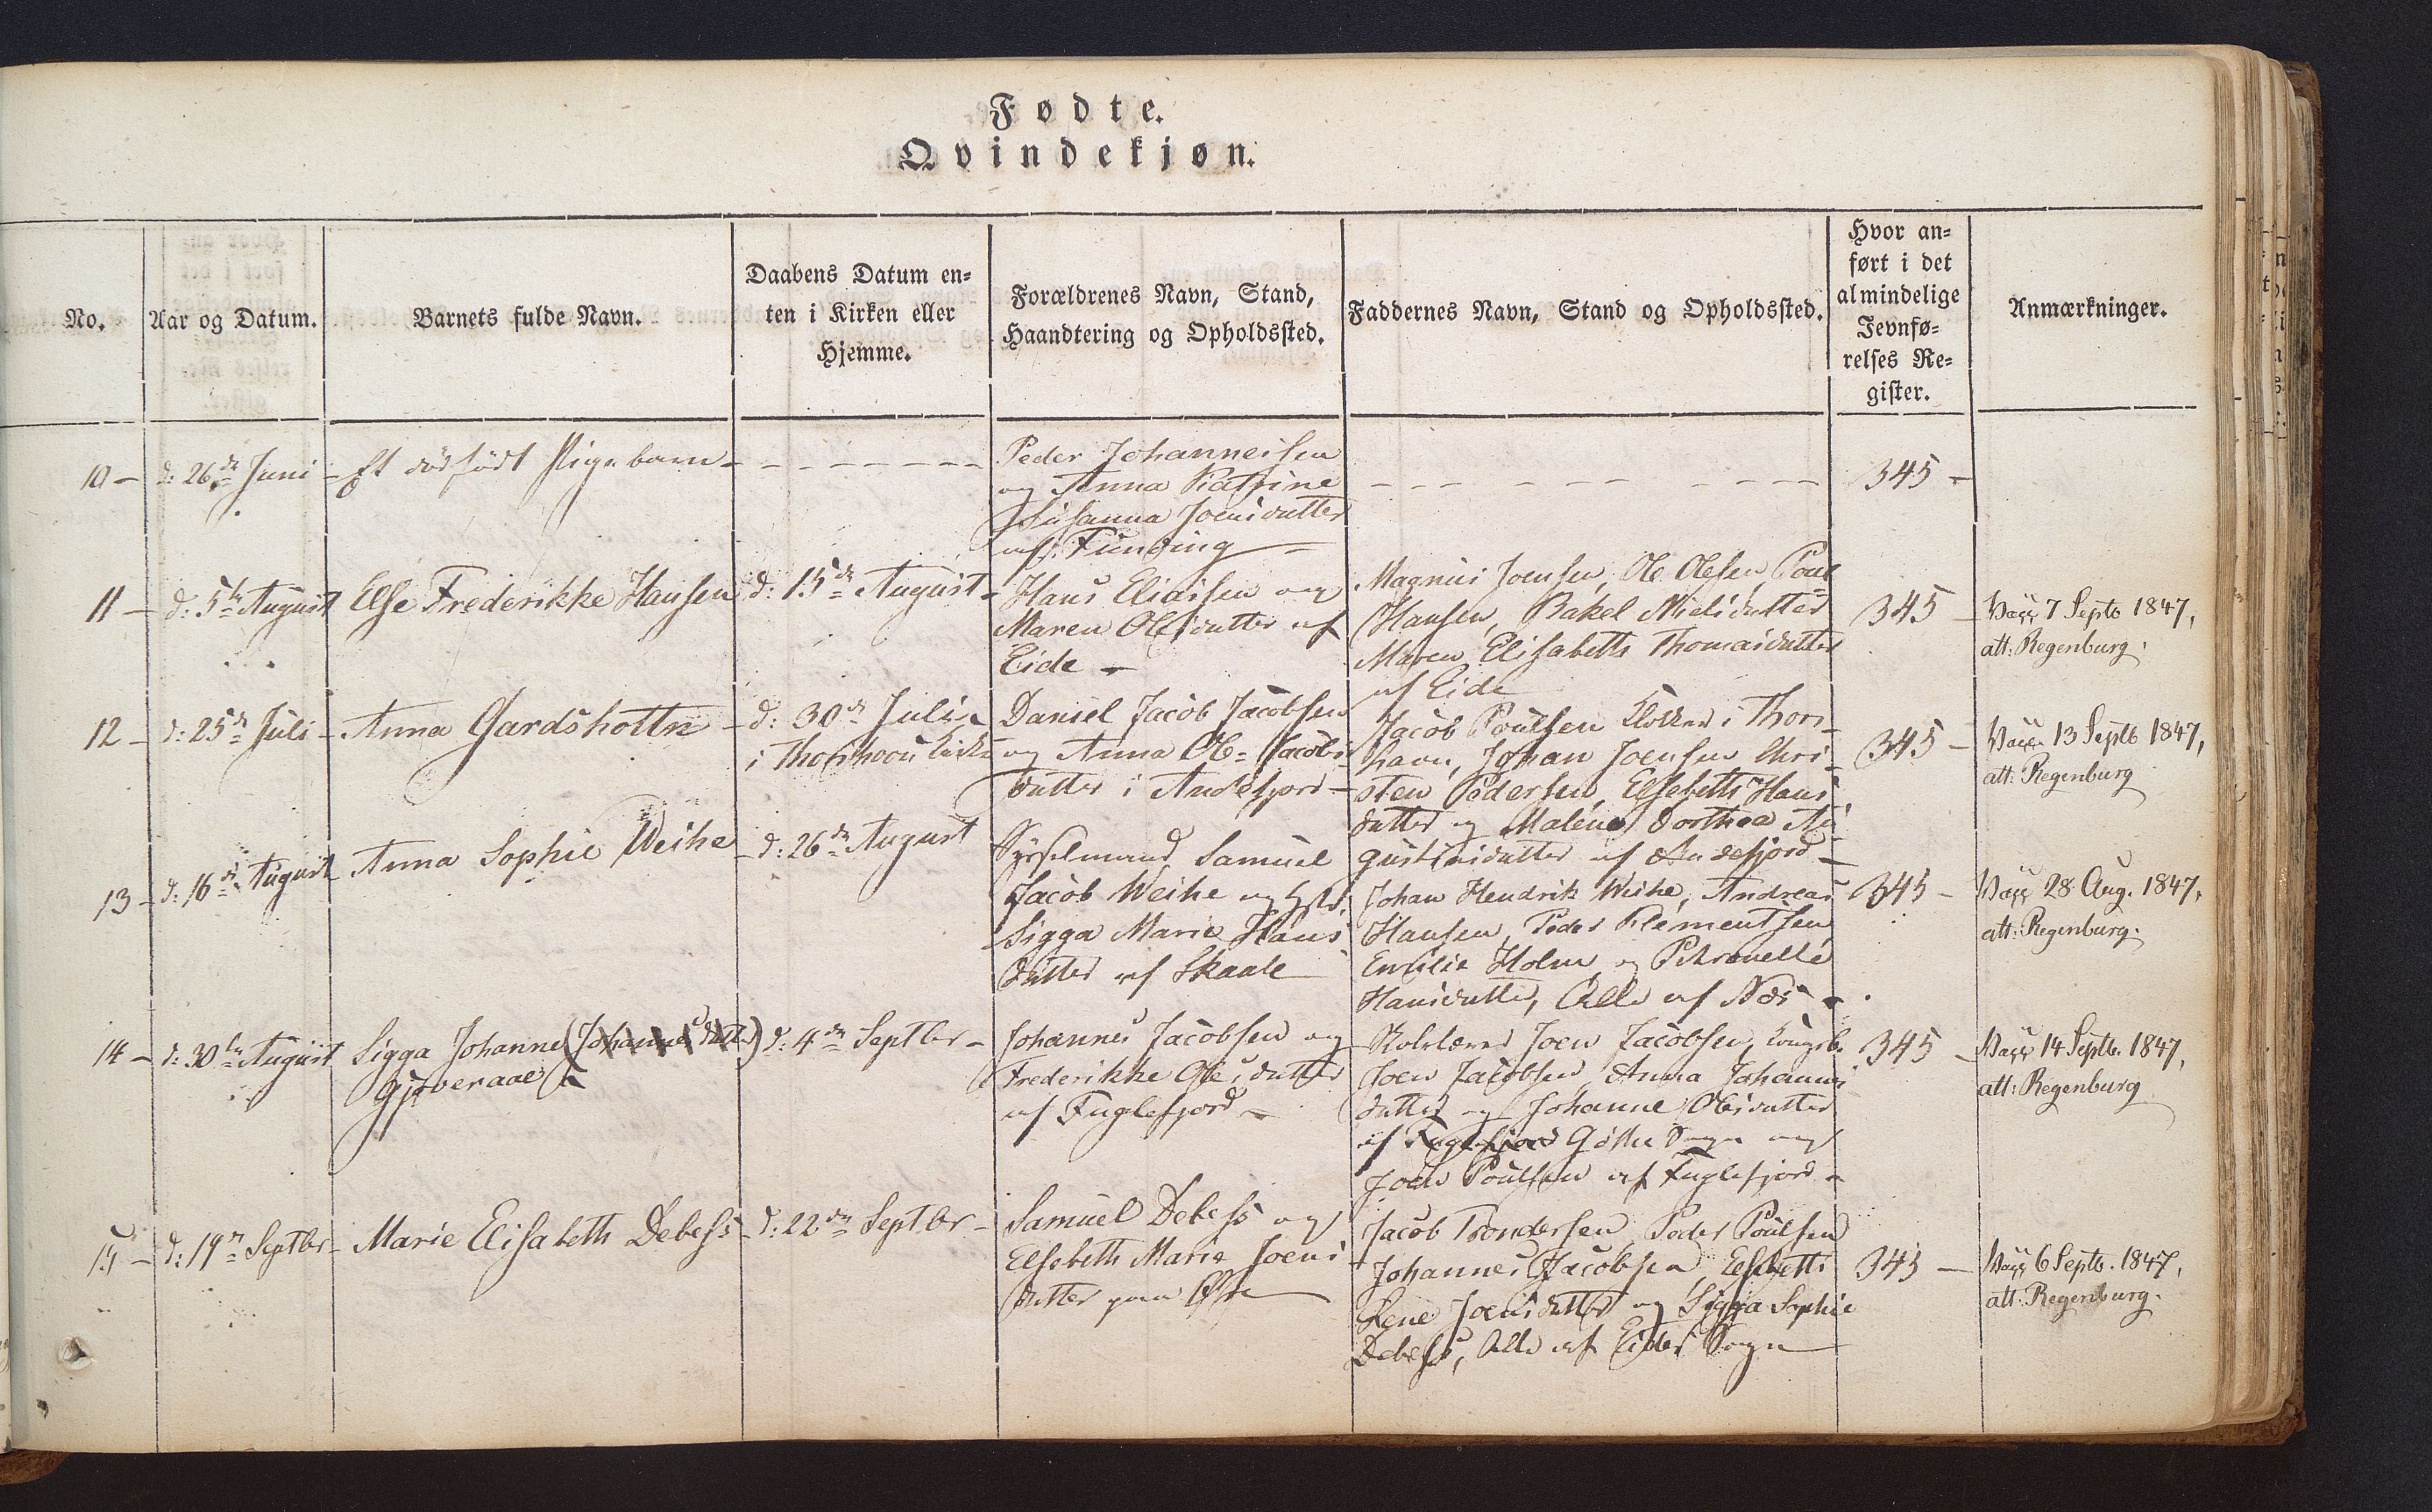 Fødte.
Qvindekjøn.
No.
Aar og Datum.
Barnets fulde Navn.
Daabens Datum en-
ten i Kirken eller
Hjemme.
Forældrenes Navn, Stand,
Haandtering og Opholdssted.
Faddernes Navn, Stand og Opholdssted.
Hvor an-
ført i det
almindelige
Jevnfø-
relses Re-
gister.
Anmærkninger.
10 - d: 26de Juni - Et dødfødt Pigebarn - - - - - - - -
Peder Johannesen
og Anna Katrine
Susanna Joensdatter
af Funding -
- - - - - - - - -
345 -
11 - d: 5te August
Else Frederikke Hansen
d: 15de August -
Hans Eliasen og
Maren Olesdatter af
Eide -
Magnus Joensen, Ole Olesen, Poul
Hansen, Rakel Nielsdatter
Maren Elisabeth Thomasdatter
af Eide
345 -
Vacc 7 Septb 1847,
att: Regenburg.
12 - d: 25de Juli -
Anna Gardshottn -
d: 30de Juli
i Thorshavn Kirke
Daniel Jacob Jacobsen
og Anna Ole- Jacobs
datter i Andefjord -
Jacob Poulsen Klokker i Thors-
havn, Johan Joensen Chri-
sten Pedersen, Elsebeth Hans
datter og Malene Dorthea Au-
gustinsdatter af Andefjord -
345 -
Vacc 13 Septb 1847,
att: Regenburg
13 - d: 16de August
Anna Sophie Weihe
- d: 26de August
Sysselmand Samuel
Jacob Weihe og Hst:
Sigga Marie Hans
datter af Skaale
Johan Hendrik Weihe, Andreas
Hansen, Peder Klementsen
Emilie Holm og Petronelle
Hansdatter, Alle af Næs -
345 -
Vacc 28 Aug. 1847,
att: Regenburg.
14 - d: 30te August
Sigga Johanne (Johannesdatter)
Gjoveraae
d: 4de Septbr -
Johannes Jacobsen og
Frederikke Ole's datter
af Fuglefjord -
Skolelærer Joen Jacobsen, Kongsb.
Joen Jacobsen, Anna Johannes
datter og Johanne Olesdatter
af Fuglefjord Gøthe Sogn og
Joen Poulsen af Fuglefjord -
345 -
Vacc 14 Septb. 1847,
att: Regenburg
15 - d: 19de Septbr -
Marie Elisabeth Debess
- d: 22de Septbr -
Samuel Debess og
Elsebeth Marie Joens
datter paa Øre
Jacob Trondersen, Peder Poulsen
Johannes Jacobsen, Elsebeth
Lene Joensdatter og Sigga Sophie
Debess, Alle af Eides Sogn
345 -
Vacc 6 Septb. 1847,
att: Regenburg.